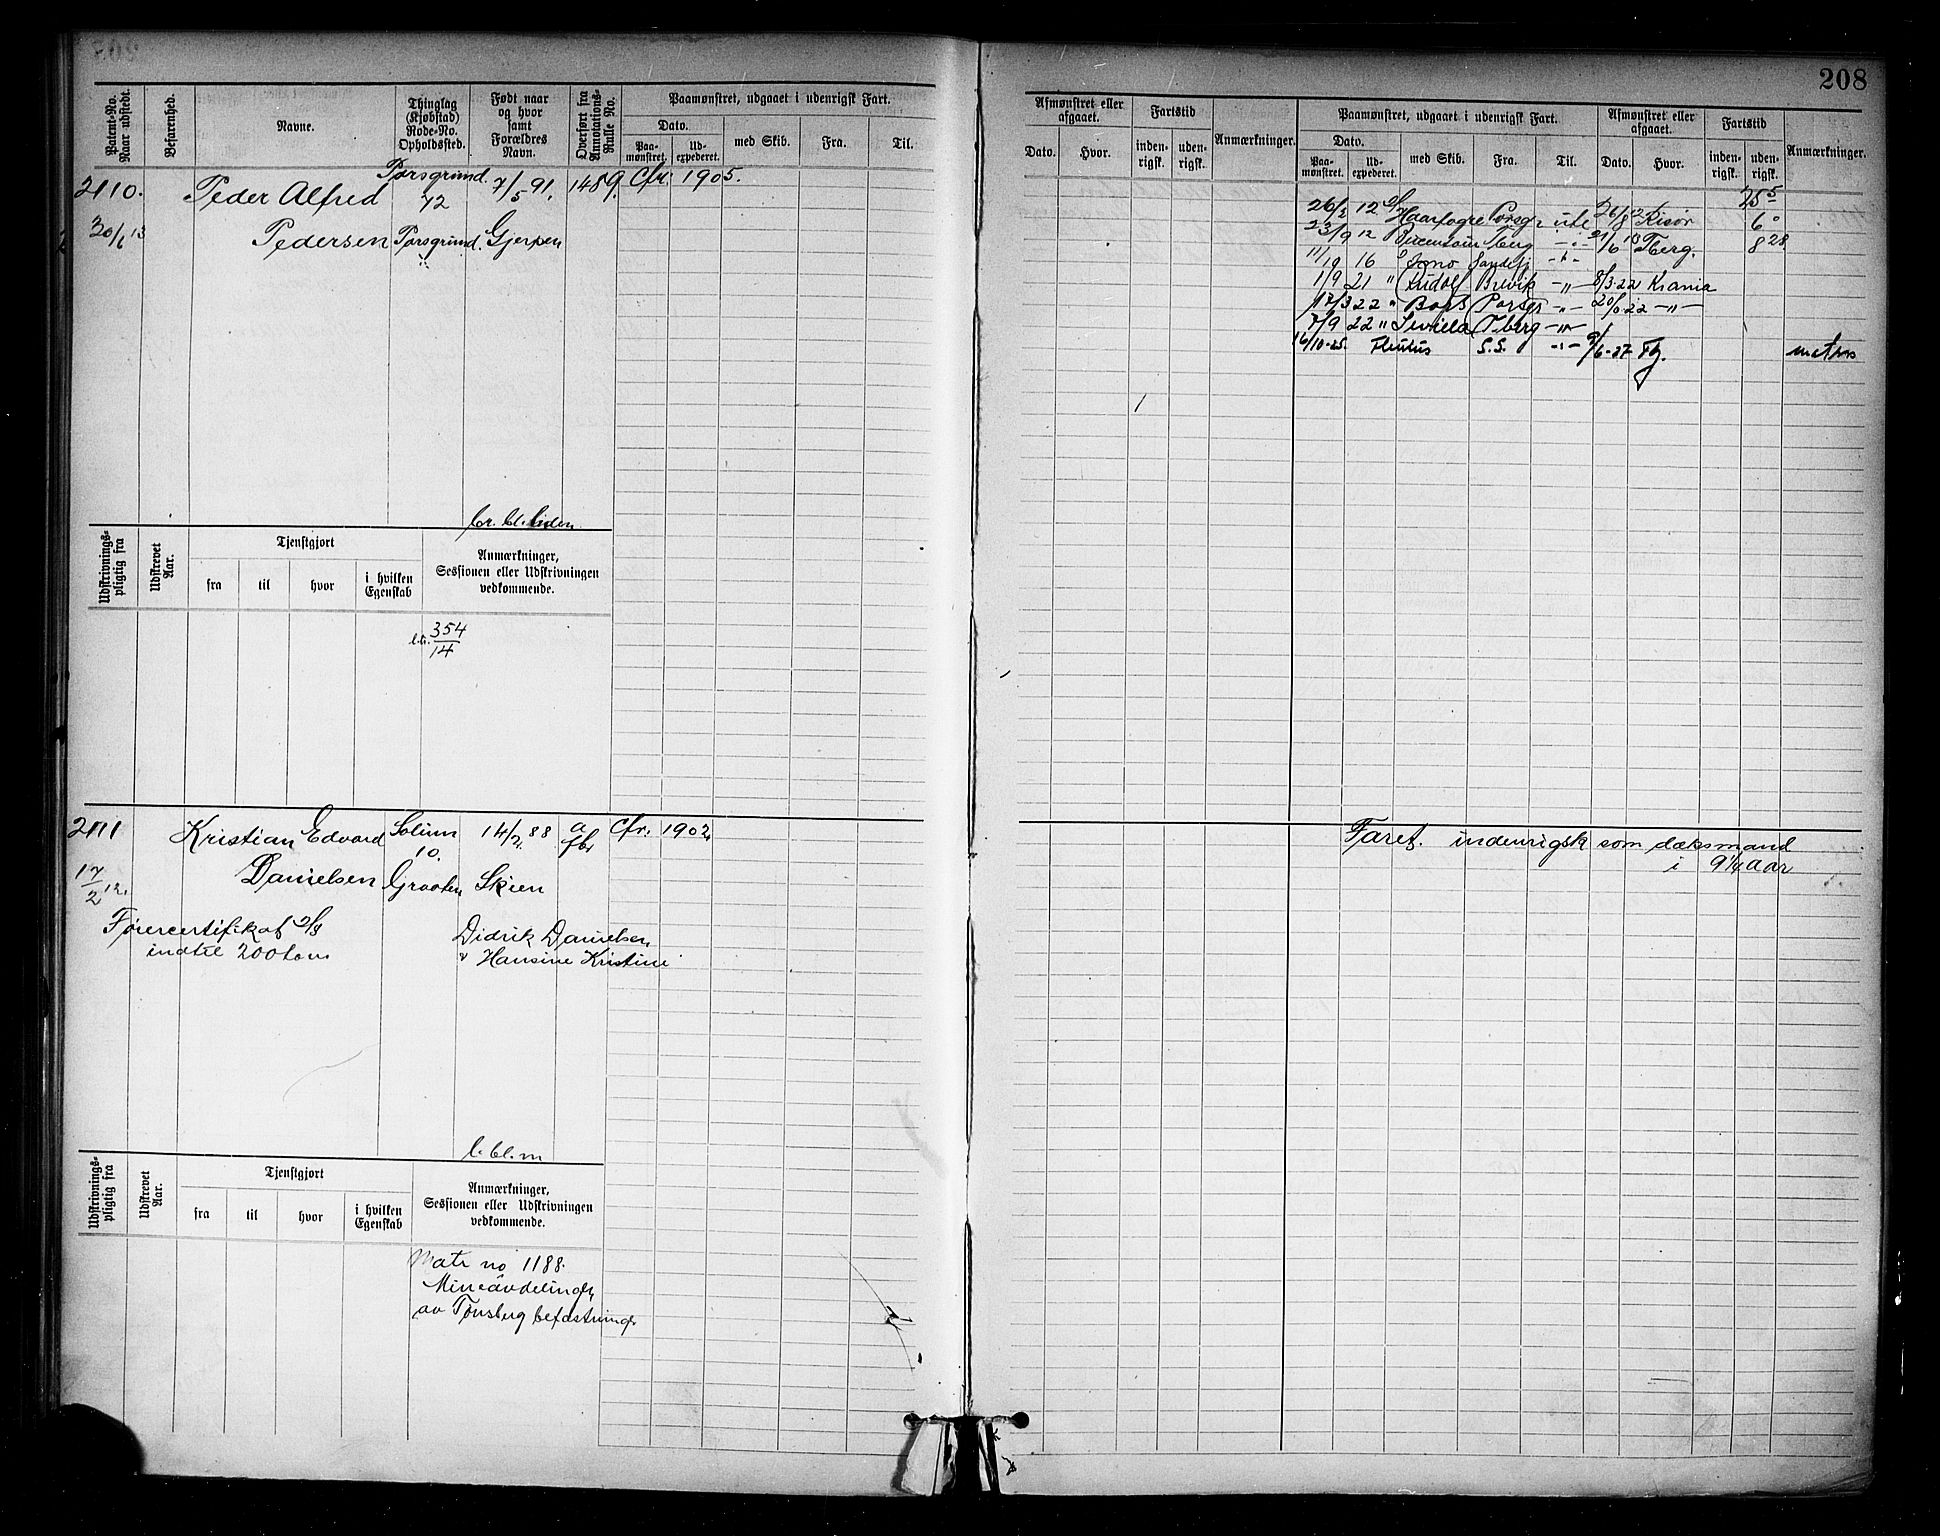 208
Patent-No.
Naar udstedt.
Befarenhed.
Navne.
Thinglag
(Kjøbstad)
Rode-No.
Opholdssted.
Født naar
og hvor
samt
Forældres
Navn.
Overført fra
Annotations-
Rulle No.
Paamønstret, udgaaet i udenrigsk Fart.
Dato.
Paa-
mønstret.
Ud-
expederet.
med Skib.
Fra.
Til.
Afmønstret eller
afgaaet.
Dato.
Hvor.
Fartstid
inden-
rigsk.
uden-
rigsk.
Anmærkninger.
Paamønstret, udgaaet i udenrigsk Fart.
Dato.
Paa-
mønstret.
Ud-
expederet.
med Skib.
Fra.
Til.
Afmønstret eller
afgaaet.
Dato.
Hvor.
Fartstid
inden-
rigsk.
uden-
rigsk.
Anmærkninger.
2110. Peder Alfred Porsgrund. 7/5 91. 1489. Cfr. 1905.
72
Pedersen Porsgrund. Gjerpen
25 5
26/2 12 Haarfagre Porsgr ute 26/8 12 Risør 6 0
23/9 12 Tberg -"- 21/6 13 Tberg. 8 28
11/9 16 Sandefj -"-
1/9 21 " Rudolf Brevik -"- 8/3.22 Krania
17/3 22 " Porsgr -"- 20/6.22 -"-
7/9 22 " Sevilla Tberg -"-
16/10-25. S.S. -"- 9/6-27
Udskrivnings-
pligtig fra
Udskrevet
Aar.
Tjenstgjort
fra
til
hvor
i hvilken
Egenskab
Anmærkninger,
Sessionen eller Udskrivningen
vedkommende.
354
14
2111 Kristian Edvard Solum 14/2 88 a Cfr. 1902
10.
Danielsen Graaten Skien
17/2 12.
Førercertifikat
indtil 200 tons
Didrik Danielsen
Hansine Kristine
Faret. indenrigsk som dæksmand
i 9 1/4 Aar
Udskrivnings-
pligtig fra
Udskrevet
Aar.
Tjenstgjort
fra
til
hvor
i hvilken
Egenskab
Anmærkninger,
Sessionen eller Udskrivningen
vedkommende.
Matr no 1188.
Mineavdelingen
av Tønsberg befæstninger